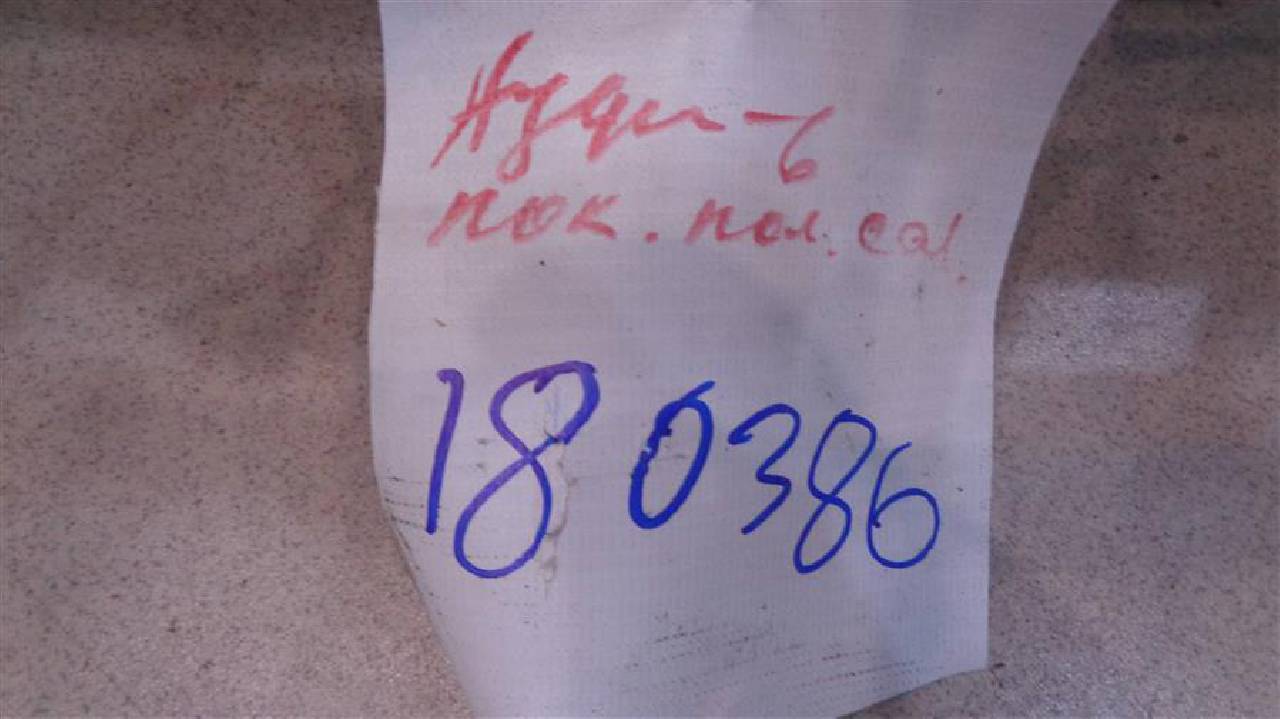 Ауди-6
пок. пол. сал.
180386